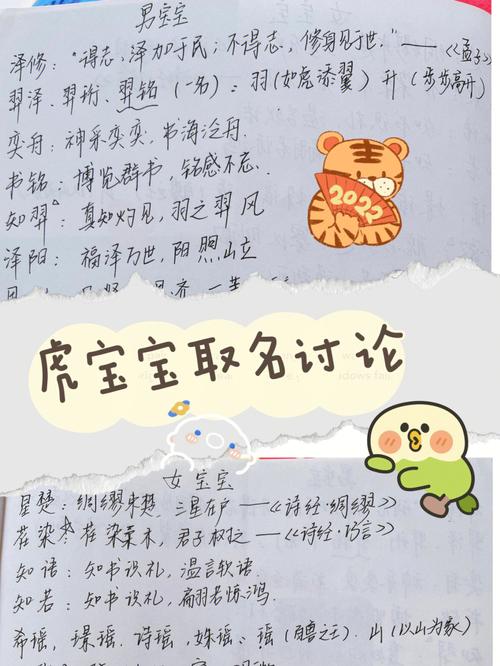 男宝宝
泽修："得志，泽加于民；不得志，修身见于世。"——《孟子》
羿泽、羿珩、羿铭（一名）：羽（如虎添翼）升（步步高升）
奕舟：神采奕奕，书海泛舟．
书铭：博览群书，铭感不忘．
知羿：真知灼见，羽之羿风
泽阳：福泽万世，阳照山立
2022
虎宝宝取名讨论
女宝宝
星楚：绸缪束楚，三星在户——《诗经·绸缪》
荏染：荏染柔木，君子树之——《诗经·巧言》
知语：知书识礼，温言软语．
知若：知书识礼，翩若惊鸿．
希瑶，璟瑶．诗瑶，姝瑶：瑶